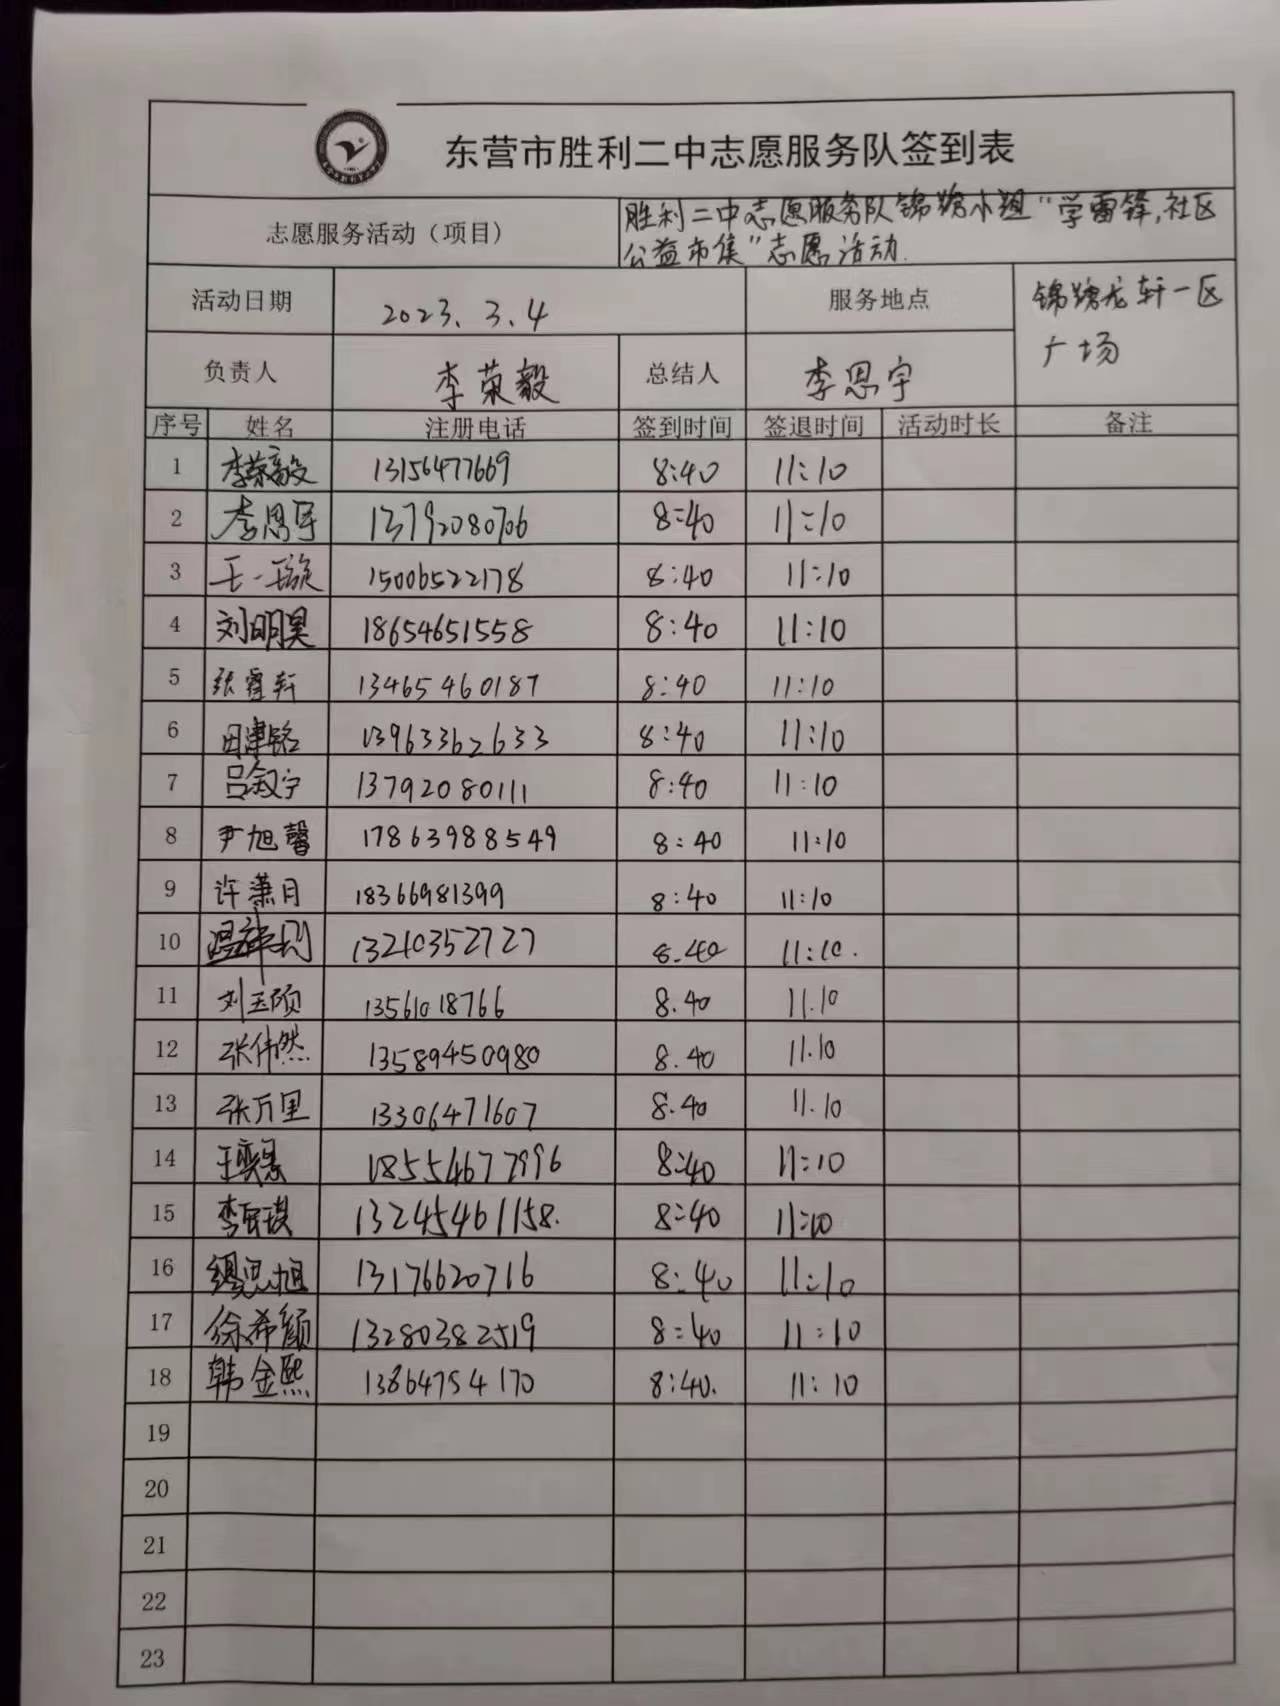 东营市胜利二中志愿服务队签到表
志愿服务活动（项目） 胜利二中志愿服务队锦小组“学雷锋,社区
公益市集”志愿活动.
活动日期 2023.3.4 服务地点 锦龙轩一区
广场
负责人 李荣毅 总结人 李思宇
序号 姓名 注册电话 签到时间 签退时间 活动时长 备注
1 李荣毅 13156477669 8:40 11:10
2 李思宇 13792080706 8:40 11:10
3 王一璇 15006522178 8:40 11:10
4 刘明昊 18654651558 8:40 11:10
5 张轩 13465460187 8:40 11:10
6 田建铭 13963362633 8:40 11:10
7 吕叙宁 13792080111 8:40 11:10
8 尹旭馨 17863988549 8:40 11:10
9 许潇月 18366981399 8:40 11:10
10 温 13210352727 8.40 11:10.
11 刘玉硕 13561018766 8.40 11.10
12 张伟然 13589450980 8.40 11.10
13 张万里 13306471607 8.40 11.10
14 王奕 18554677996 8:40 11:10
15 李琪 13245461158. 8:40 11:10
16 思旭 13176620716 8:40 11:10
17 徐希颜 13280382519 8:40 11:10
18 韩金熙 13864754170 8:40. 11:10
19
20
21
22
23